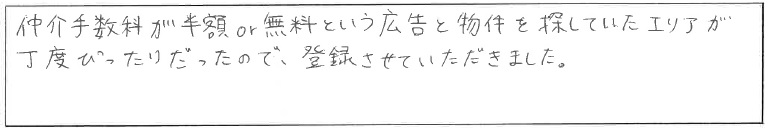 仲介手数料が半額or無料という広告と物件を探していたエリアが
丁度ぴったりだったので、登録させていただきました。